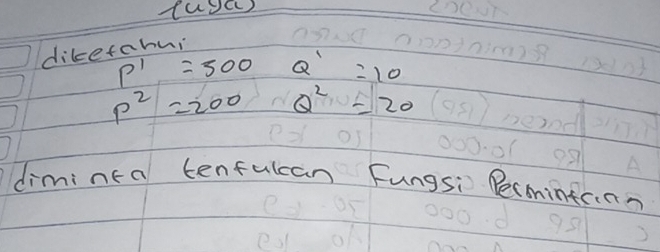 Tugas
diketahui
P¹ = 500 Q¹ = 10
P² = 200 Q² = 20
diminta tentukan Fungsi Permintaan